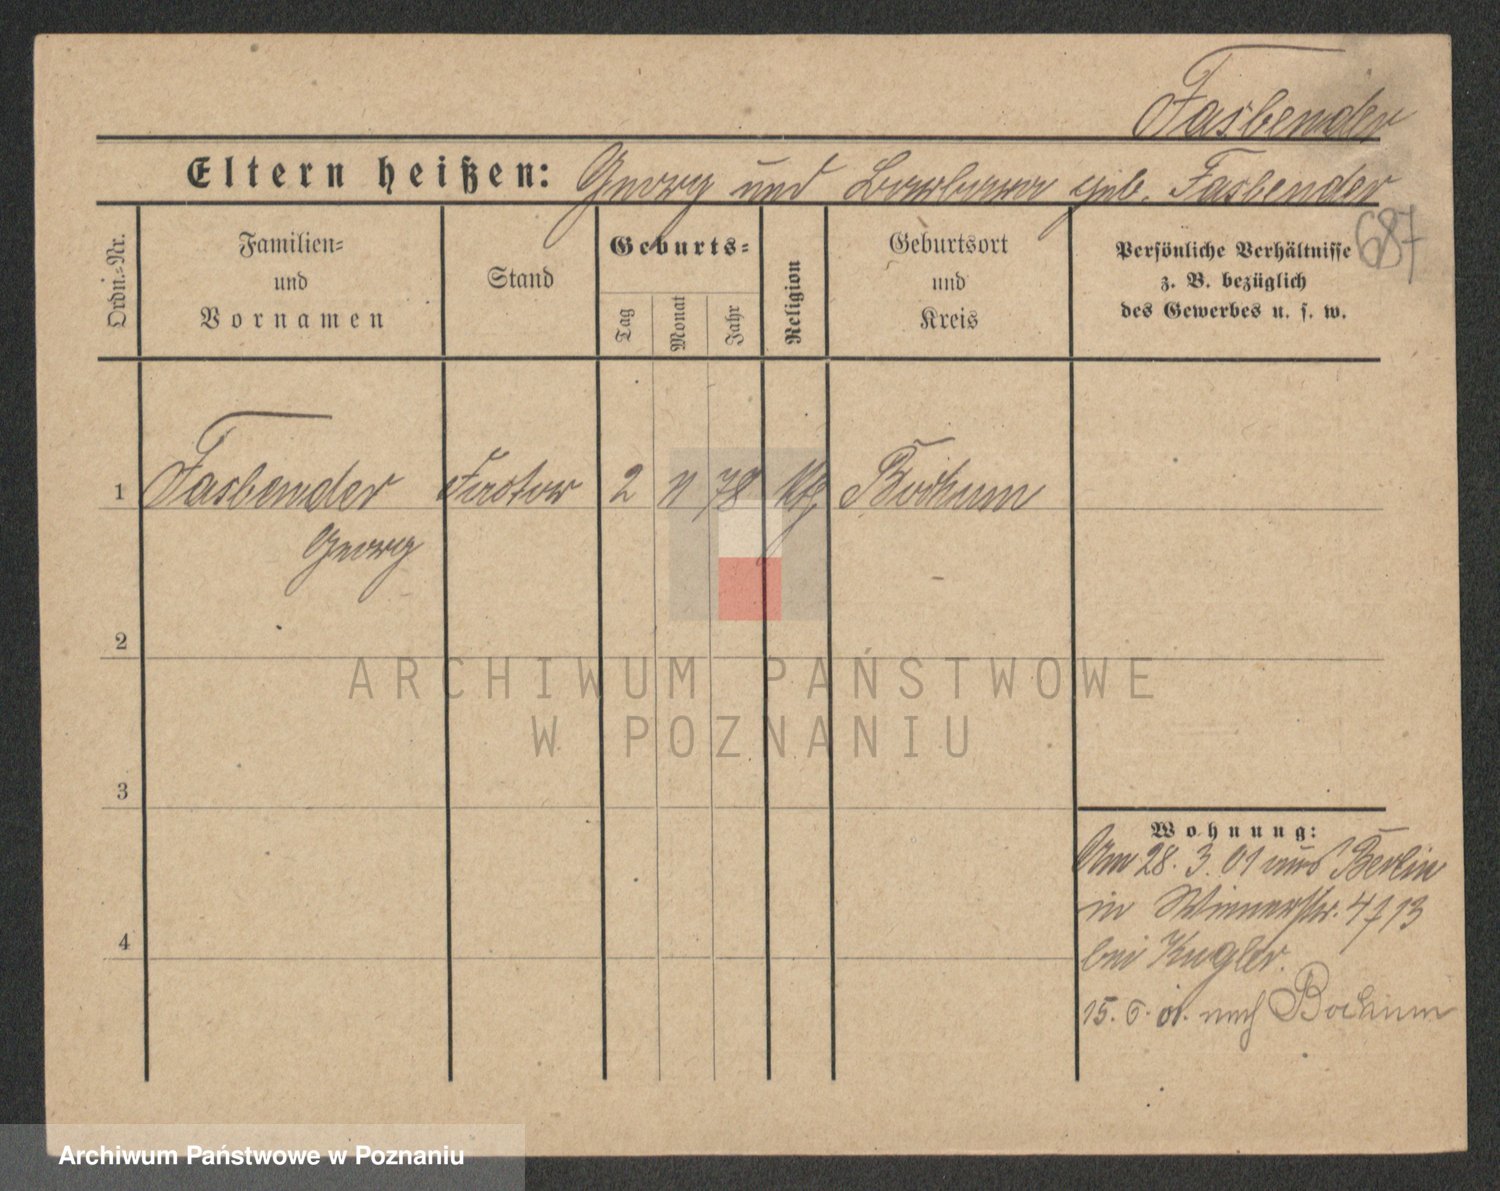 Fasbender
Eltern heißen: Georg und Barbara geb. Fasbender
687
Ordn.-Nr.
Familien-
und
Vornamen
Stand
Geburts-
Tag
Monat
Jahr
Religion
Geburtsort
und
Kreis
Persönliche Verhältnisse
z. B. bezüglich
des Gewerbes u. s. w.
1 Fasbender 2 78 Bochum
Georg
2
ARCHIWUM PAŃSTWOWE
W POZNANIU
3
Wohnung:
Am 28. 3. 01 aus Berlin
in
4
bei Kugler.
15. 6. 01. nach Bochum
Archiwum Państwowe w Poznaniu